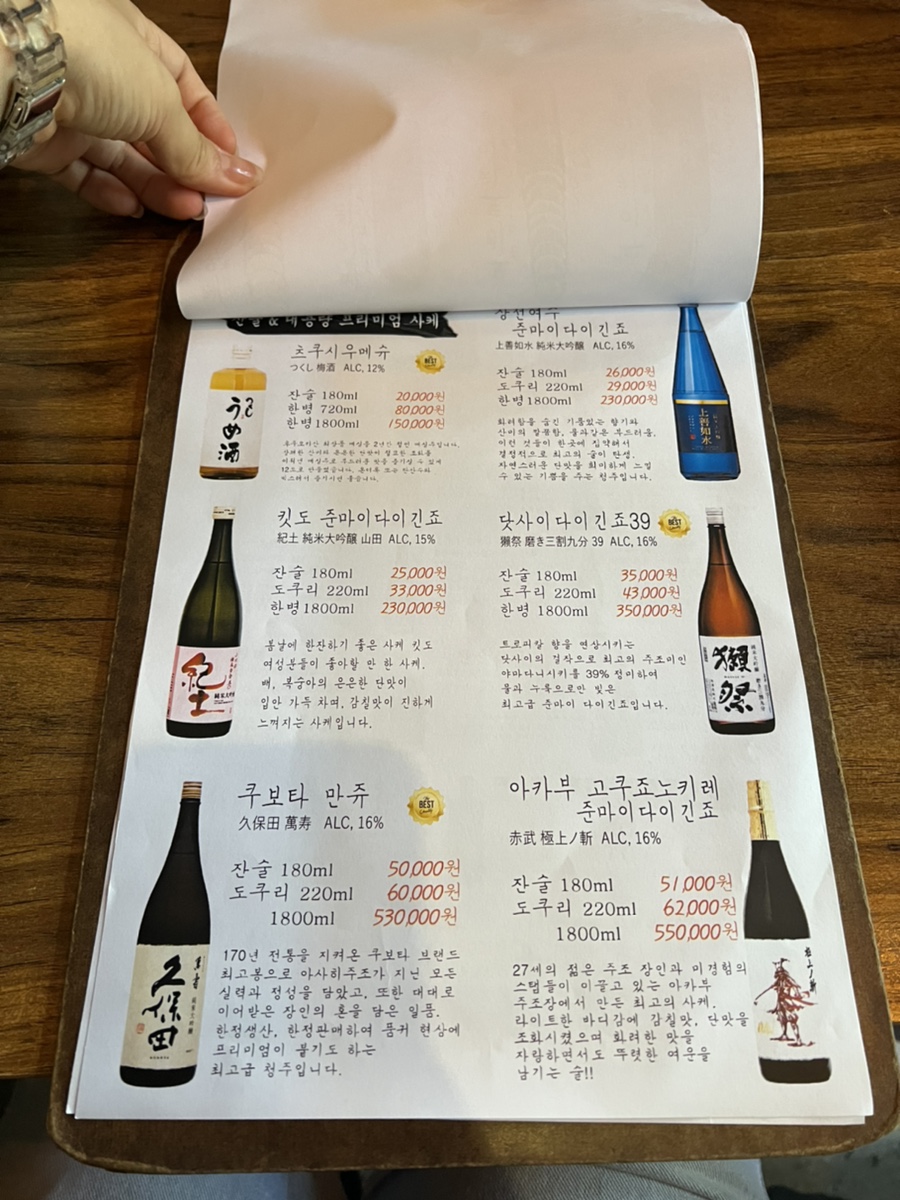 잔술 & 대용량 프리미엄 사케
츠쿠시우메슈
つくし 梅酒 ALC, 12%
BEST
잔술 180ml 20,000원
한병 720ml 80,000원
한병 1800ml 150,000원
うめ酒
상선여수
준마이다이긴죠
上善如水 純米大吟醸 ALC, 16%
잔술 180ml 26,000원
도쿠리 220ml 29,000원
한병 1800ml 230,000원
화려함을 숨긴 기품있는 향기와
산미의 깔끔함, 물과같은 부드러움,
이런 것들이 한곳에 집약해서
결정적으로 최고의 술이 탄생.
자연스러운 단맛을 희미하게 느낄
수 있는 기쁨을 주는 청주입니다.
上善如水
킷도 준마이다이긴죠
紀土 純米大吟醸 山田 ALC, 15%
잔술 180ml 25,000원
도쿠리 220ml 33,000원
한병 1800ml 230,000원
봄날에 한잔하기 좋은 사케 킷도
여성분들이 좋아할 만 한 사케.
배, 복숭아의 은은한 단맛이
입안 가득 차며, 감칠맛이 진하게
느껴지는 사케입니다.
紀土
純米大吟醸
닷사이다이긴죠39
獺祭 磨き三割九分 39 ALC, 16%
BEST
잔술 180ml 35,000원
도쿠리 220ml 43,000원
한병 1800ml 350,000원
트로피칼 향을 연상시키는
닷사이의 걸작으로 최고의 주조미인
야마다니시키를 39% 정미하여
물과 누룩으로만 빚은
최고급 준마이 다이긴죠입니다.
獺祭
쿠보타 만쥬
久保田 萬寿 ALC, 16%
BEST
잔술 180ml 50,000원
도쿠리 220ml 60,000원
1800ml 530,000원
170년 전통을 지켜온 쿠보타 브랜드
최고봉으로 아사히주조가 지닌 모든
실력과 정성을 담았고, 또한 대대로
이어받은 장인의 혼을 담은 일품.
한정생산, 한정판매하여 품귀 현상에
프리미엄이 붙기도 하는
최고급 청주입니다.
久保田
萬寿
아카부 고쿠죠노키레
준마이다이긴죠
赤武 極上ノ斬 ALC, 16%
잔술 180ml 51,000원
도쿠리 220ml 62,000원
1800ml 550,000원
27세의 젊은 주조 장인과 미경험의
스탭들이 이끌고 있는 아카부
주조장에서 만든 최고의 사케.
라이트한 바디감에 감칠맛, 단맛을
조화시켰으며 화려한 맛을
자랑하면서도 뚜렷한 여운을
남기는 술!!
極上ノ斬